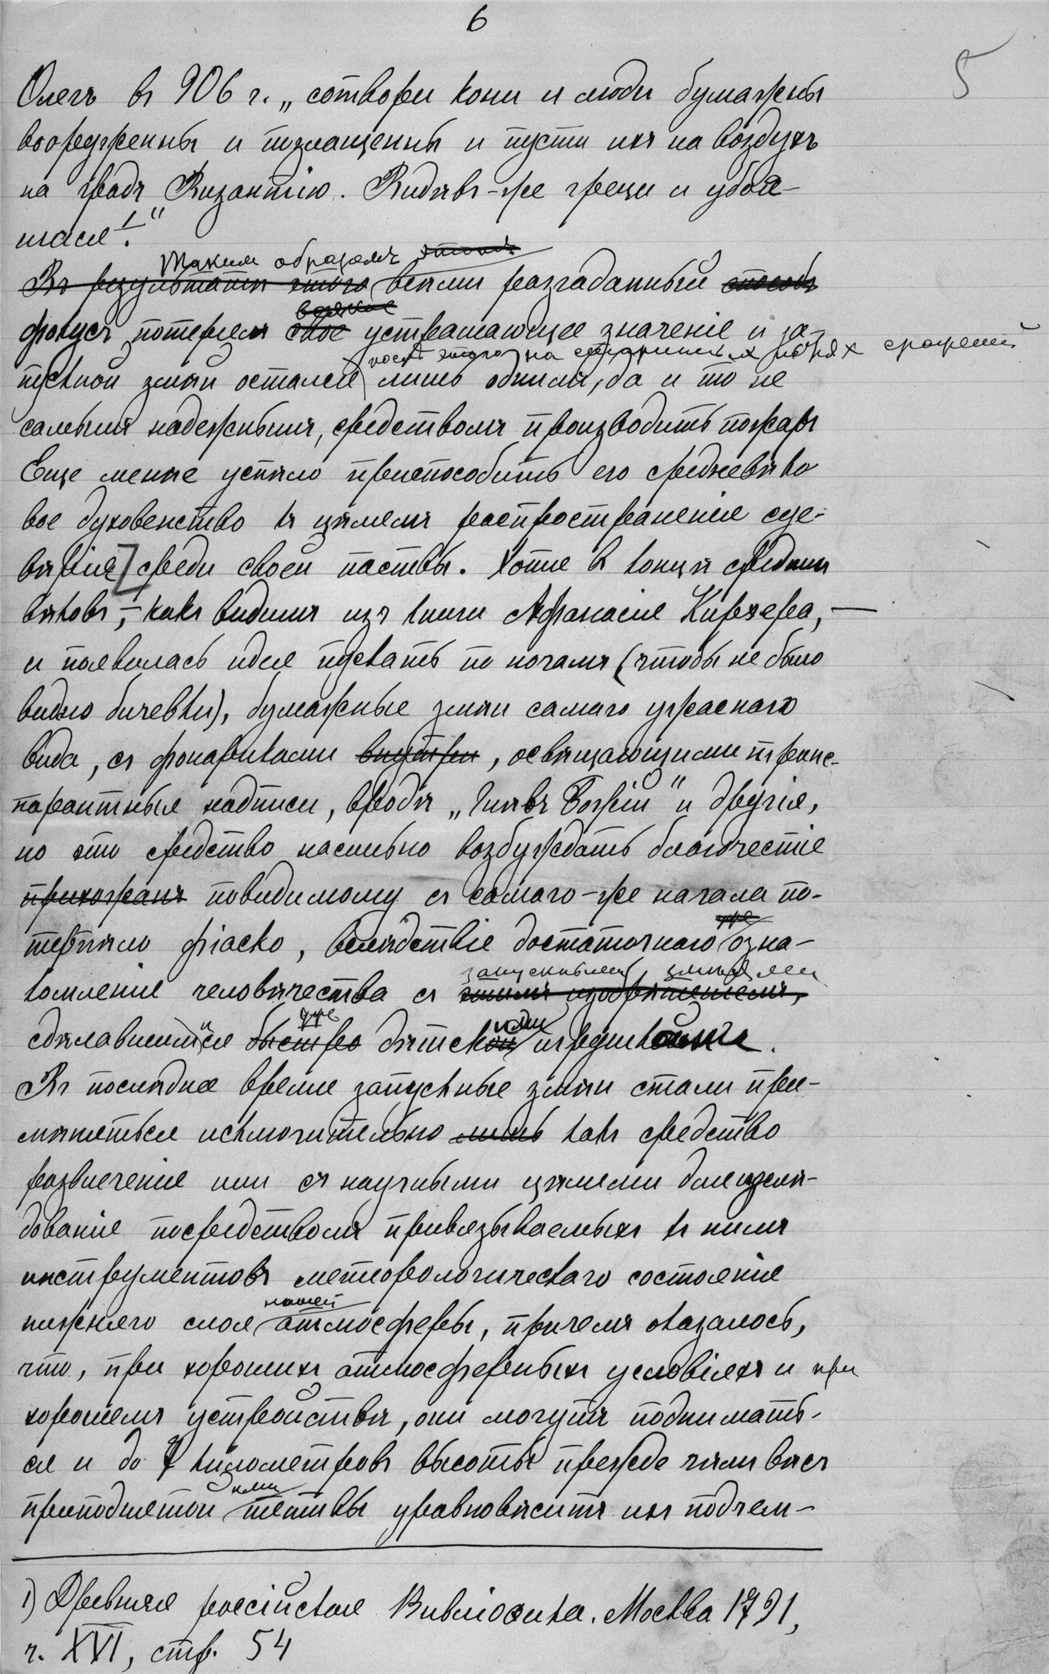 6
5
Олегъ въ 906 г. „сотвори кони и люди бумажны
вооруженны и позлащенны и пусти ихъ на воздухъ
на градъ Византію. Видѣвъ-же греци и убоя-
шася1.“
Такимъ образомъ
Въ результатѣ этого всѣми разгаданный способъ
фокусъ потерялъ свое всякое устрашающее значеніе и за-
послѣ этого на старинныхъ поляхъ сраженій
пускной змѣй остался лишь однимъ, да и то не
самымъ надежнымъ, средствомъ производить пожары
Еще менѣе успѣло приспособить его средневѣко
вое духовенство къ цѣлямъ распространенія суе-
вѣрія] среди своей паствы. Хотя въ концѣ среднихъ
вѣковъ, — какъ видимъ изъ книги Афанасія Кирхера, —
и появилась идея пускать по ночамъ (чтобы не было
видно бичевки), бумажные змѣи самаго ужаснаго
вида, съ фонариками внутри, освѣщающими транс-
парантныя надписи, вродѣ „Гнѣвъ Божій“ и другія,
но это средство насильно возбуждать благочестіе
прихожанъ повидимому съ самаго-же начала по-
же
терпѣло фіаско, вслѣдствіе достаточнаго озна-
запускнымъ змѣемъ
комленія человѣчества съ этимъ изобрѣтеніемъ,
уже ими
сдѣлавшимся быстро дѣтской игрушкой.
Въ послѣднее время запускные змѣи стали при-
мѣняться исключительно лишь какъ средство
развлеченія или съ научными цѣлями для изслѣ-
дованія посредствомъ привязываемыхъ къ нимъ
инструментовъ метеорологическаго состоянія
нашей
нижняго слоя атмосферы, причемъ оказалось,
что, при хорошихъ атмосферныхъ условіяхъ и при
хорошемъ устройствѣ, они могутъ поднимать-
ся и до километровъ высоты прежде чѣмъ вѣсъ
ими
приподнятой тетивы уравновѣситъ ихъ подъем-
1) Древняя россійская Вивліоѳика. Москва 1791,
ч. XVI, стр. 54